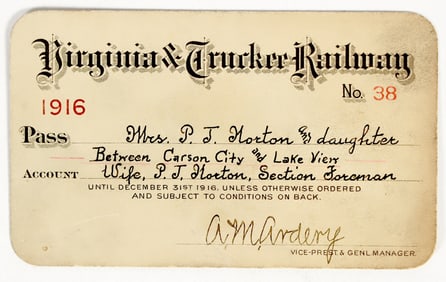 Virginia & Truckee Railway
No. 38
1916
Pass Mrs. P. T. Norton and daughter
Between Carson City and Lake View
Account Wife, P. T. Norton, Section Foreman
UNTIL DECEMBER 31ST 1916. UNLESS OTHERWISE ORDERED
AND SUBJECT TO CONDITIONS ON BACK.
A. M. Ardery
VICE-PREST & GENL. MANAGER.